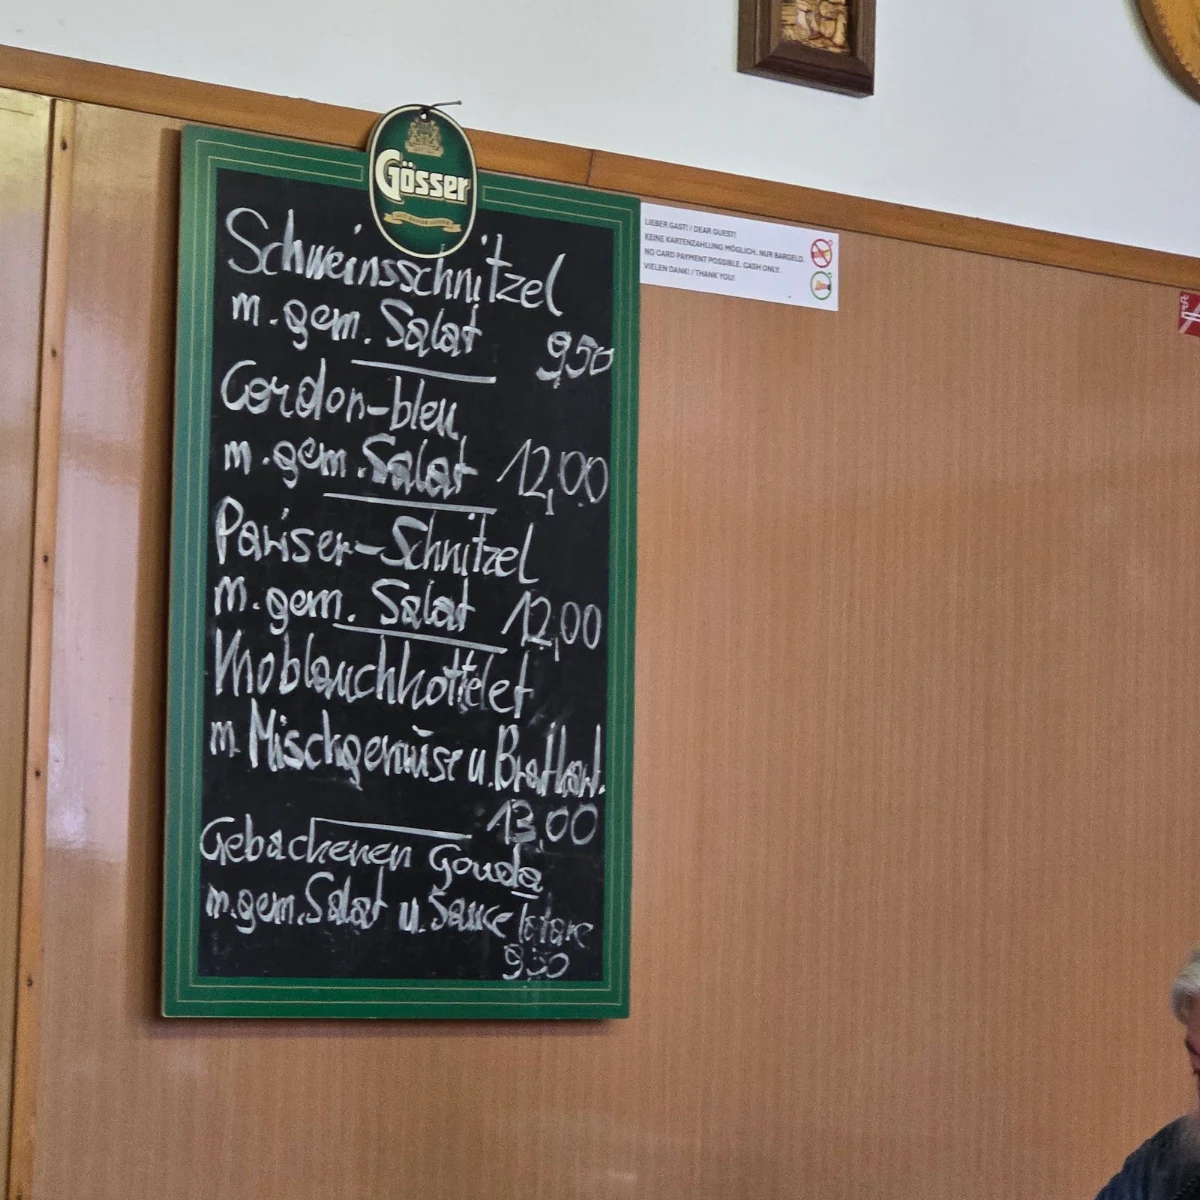 Gösser
Schweinsschnitzel
m. gem. Salat 9,50
Cordon-bleu
m. gem. Salat 12,00
Pariser-Schnitzel
m. gem. Salat 12,00
Knoblauchkottelet
m. Mischgemüse u. Bratkart.
13,00
Gebackenen Gouda
m. gem. Salat u. Sauce tatare
9,50
LIEBER GAST! / DEAR GUEST!
KEINE KARTENZAHLUNG MÖGLICH, NUR BARGELD.
NO CARD PAYMENT POSSIBLE. CASH ONLY.
VIELEN DANK! / THANK YOU!